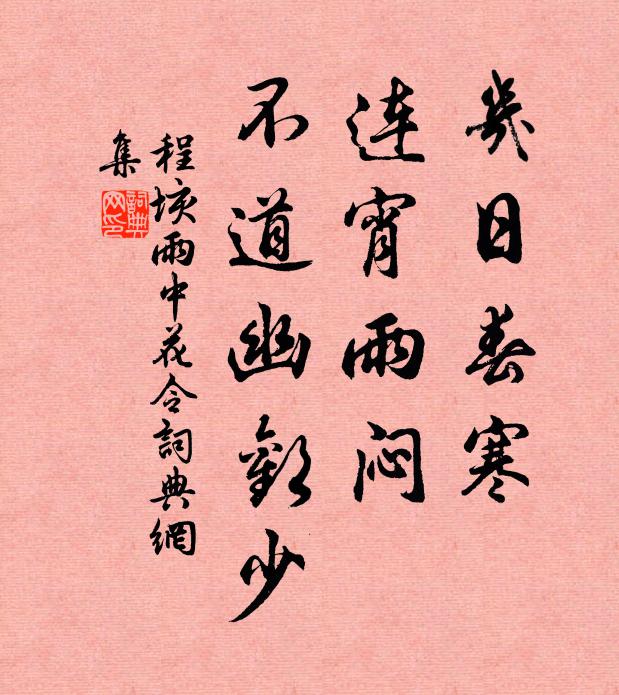 幾日春寒
連宵雨悶
不道幽歡少
程垓雨中花令詞典網
集
詞典
网印